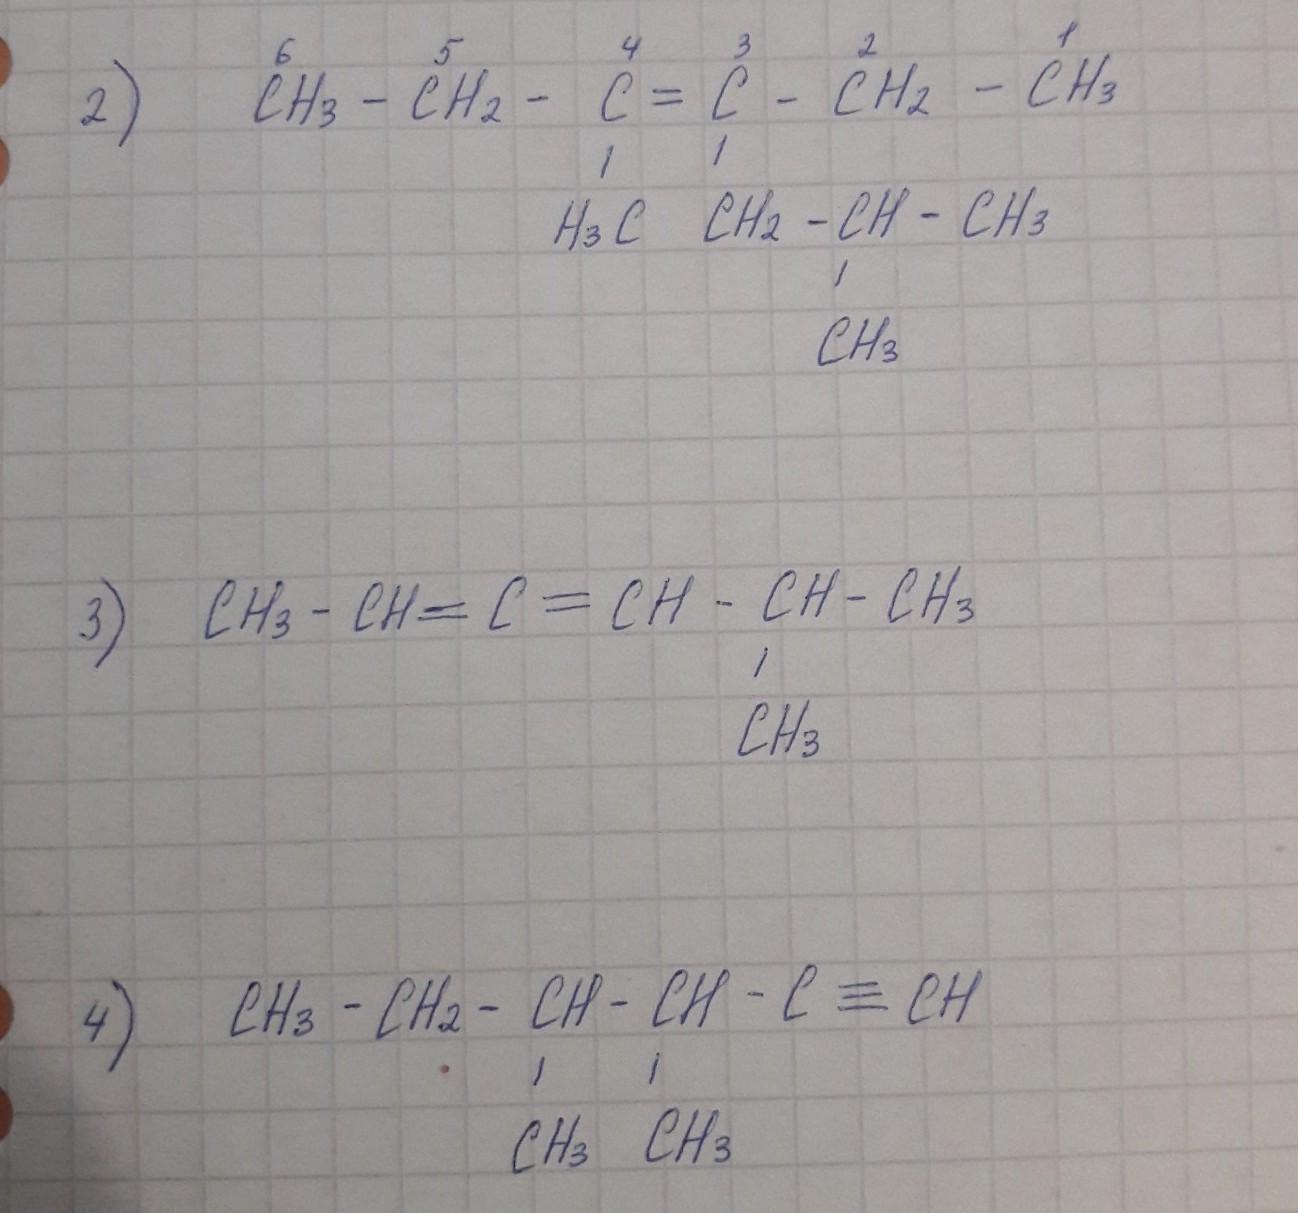 6 5 4 3 2 1
2) CH3 - CH2 - C = C - CH2 - CH3
H3C CH2 - CH - CH3
CH3
3) CH3 - CH = C = CH - CH - CH3
CH3
4) CH3 - CH2 - CH - CH - C ≡ CH
CH3 CH3